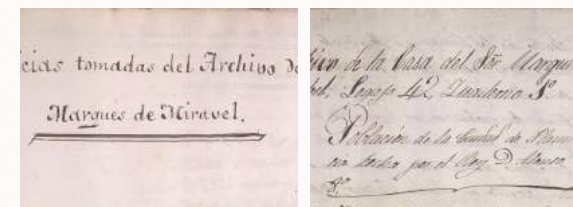 cias tomadas del Archivo de
Marqués de Miravel.
ivo de la Casa del Sõr. Marqu
bel, Legajo 42, Quaderno 1º
Poblacion de la Ciudad de Plasen
cia hecha por el Rey D. Alonso
8º